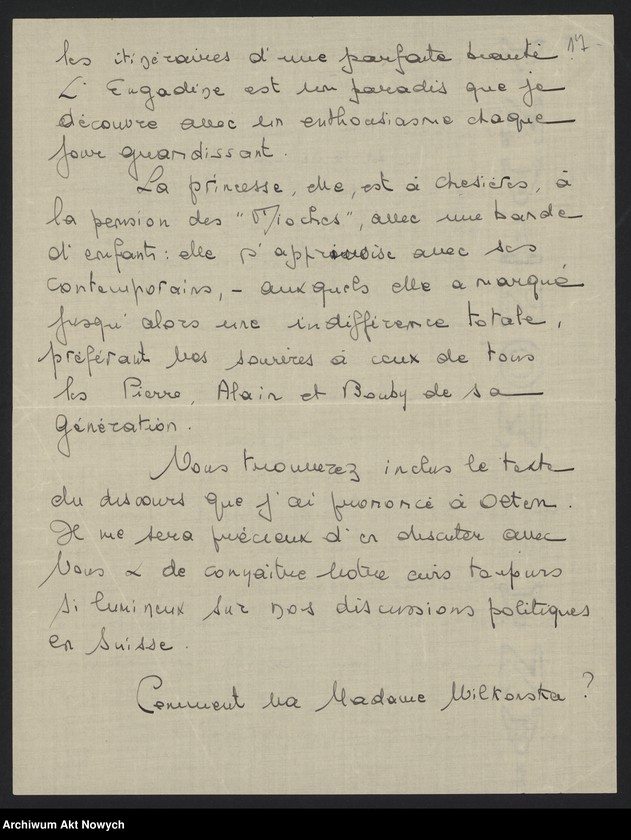 les itinéraires d'une parfaite beauté! 17
L'Engadine est un paradis que je
découvre avec un enthousiasme chaque
jour grandissant.
La princesse, elle, est à Chesières, à
la pension des "Mioches", avec une bande
d'enfants: elle s'apprivoise avec ses
contemporains, – auxquels elle a marqué
jusqu'alors une indifférence totale,
préférant vos sourires à ceux de tous
les Pierre, Alain et Bouby de sa
génération.
Vous trouverez inclus le texte
du discours que j'ai prononcé à Olten.
Il me sera précieux d'en discuter avec
Vous & de connaître Votre avis toujours
si lumineux sur nos discussions politiques
en Suisse.
Comment va Madame Wilkonska?
Archiwum Akt Nowych